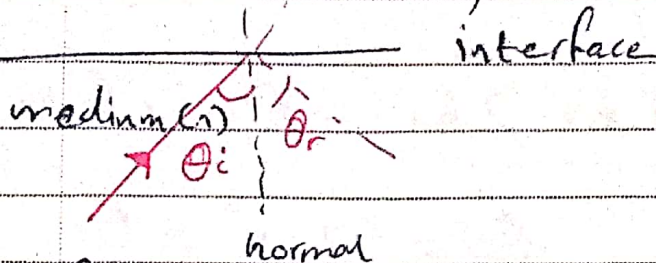 interface
medium(1)
θi
θr
normal